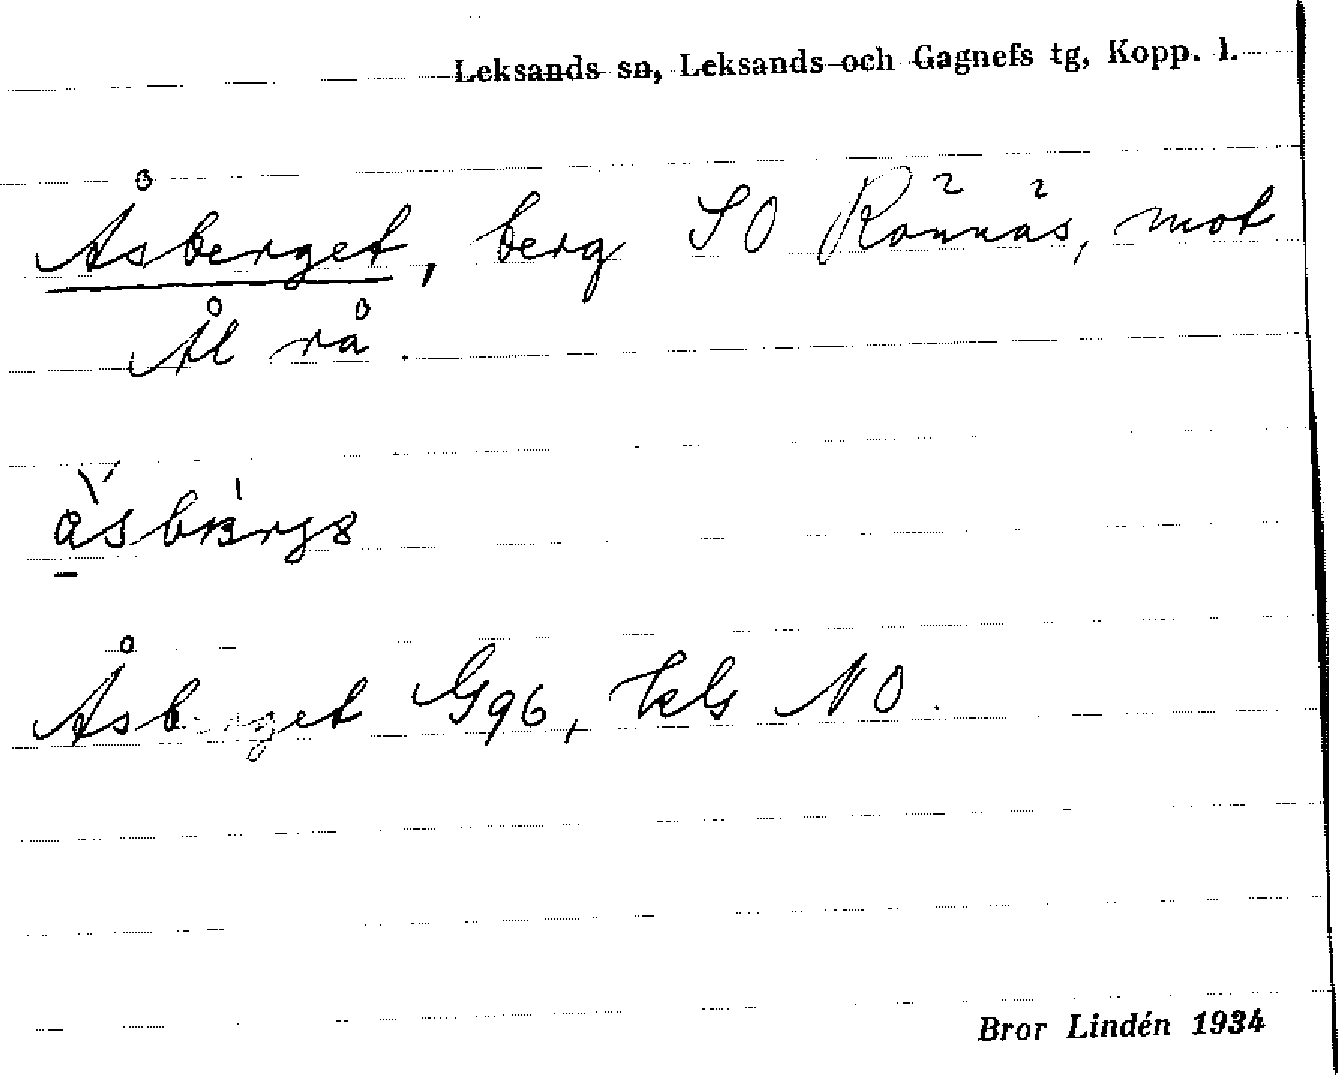 Leksands sn, Leksands och Gagnefs tg, Kopp. l.
Åsberget, berg SO Rönnäs, mot
Ål rå.
Åsberget G96, kls NO.
Bror Lindén 1934